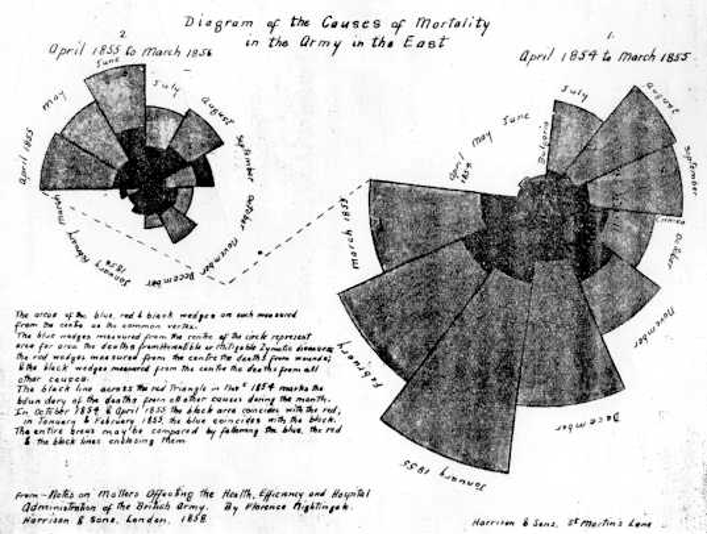 Diagram of the Causes of Mortality
in the Army in the East
2.
April 1855 to March 1856
1.
April 1854 to March 1855
April 1855
May
June
July
August
September
October
November
December
January 1856
February
March
April 1854
May
June
Bulgaria
July
August
September
Crimea
October
November
December
January 1855
February
March 1855
The areas of the blue, red & black wedges are each measured
from the centre as the common vertex.
The blue wedges measured from the centre of the circle represent
area for area the deaths from Preventible or Mitigable Zymotic diseases;
the red wedges measured from the centre the deaths from wounds;
& the black wedges measured from the centre the deaths from all
other causes.
The black line across the red triangle in 1854 marks the
boundary of the deaths from all other causes during the month.
In October 1854 & April 1855 the black area coincides with the red,
in January & February 1855, the blue coincides with the black.
The entire areas may be compared by following the blue, the red
& the black lines enclosing them
From—Notes on Matters Affecting the Health, Efficiency and Hospital
Administration of the British Army. By Florence Nightingale.
Harrison & Sons, London, 1858
Harrison & Sons, St Martin's Lane